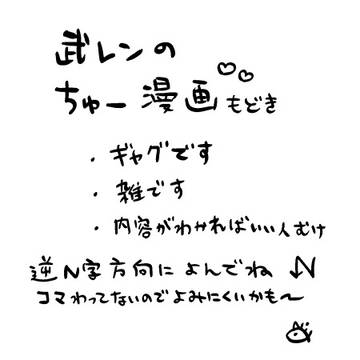 武レンの
ちゅー漫画もどき
・ギャグです
・雑です
・内容がわかればいい人むけ
逆N字方向によんでね
コマわってないのでよみにくいかも〜